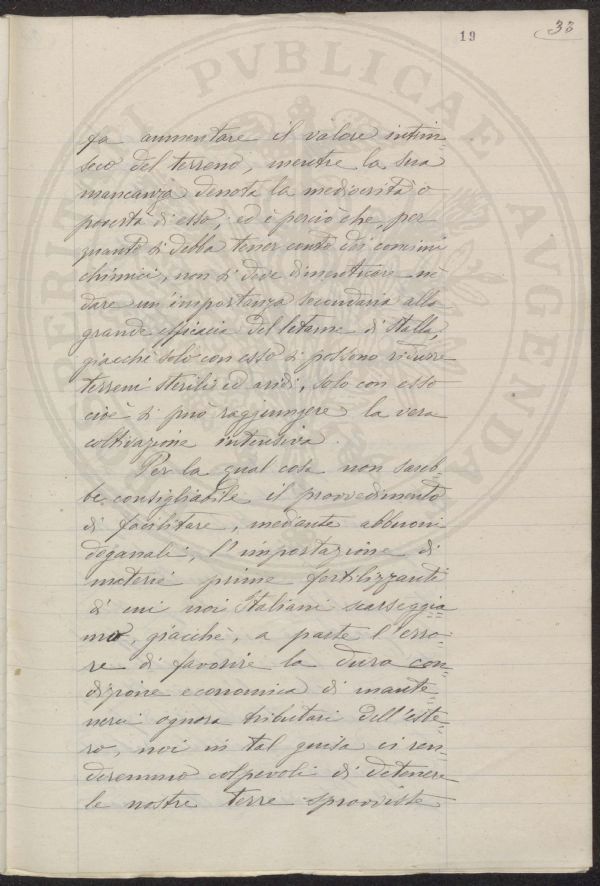 19
33
fa aumentare il valore intrin=
seco del terreno, mentre la sua
mancanza denota la mediocrità o
povertà di esso; ed è perciò che, per
quanto si debba tener conto dei concimi
chimici, non si deve dimenticare nè
dare un'importanza secondaria alla
grande efficacia del letame di stalla,
giacchè solo con esso si possono ridurre
terreni sterili ed aridi, solo con esso
cioè si può raggiungere la vera
coltivazione intensiva.
Per la qual cosa non sareb=
be consigliabile il provvedimento
di facilitare, mediante abbuoni
deganali, l'importazione di
materie prime fertilizzanti
di cui noi Italiani scarseggia
mo, giacchè, a parte l'erro=
re di favorire la dura con=
dizione economica di mante=
nerci ognora tributari dell'este=
ro, noi in tal guisa ci ren=
deremmo colpevoli di detenere
le nostre terre sprovviste
PERITIAE PVBLICAE AVGENDAE